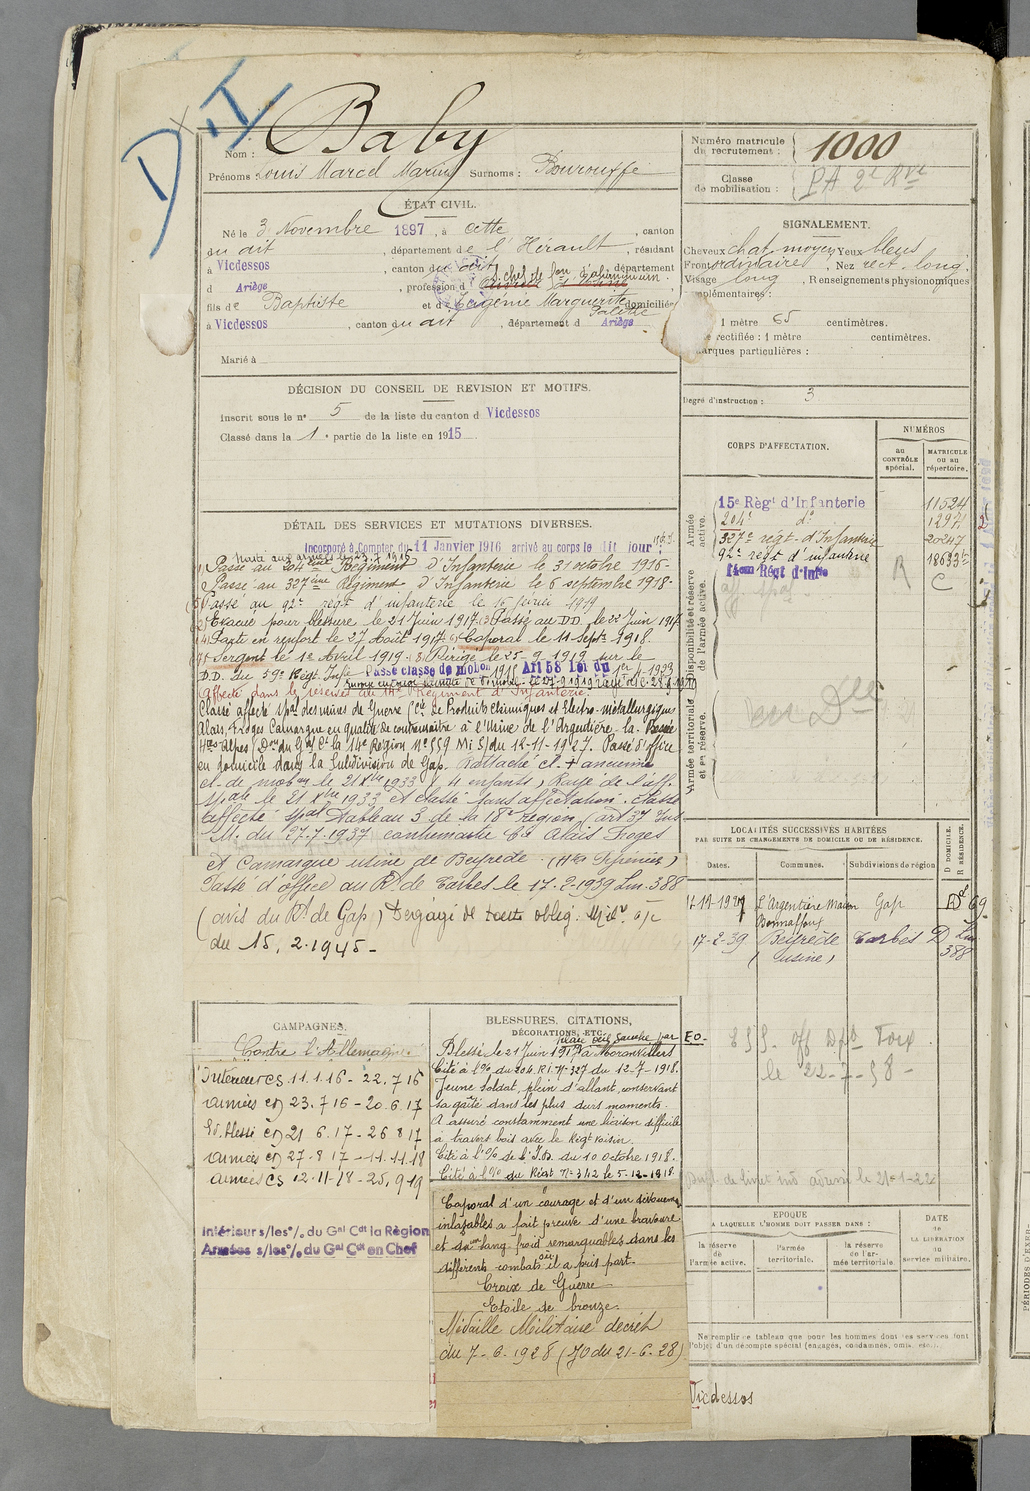 D.I
Baby
Nom :
Prénoms Louis Marcel Marius Surnoms : Bourouffe
ÉTAT CIVIL.
Né le 3 Novembre 1897, à Cette, canton
du dit, département de l'Hérault, résidant
à Vicdessos, canton du dit, département
d Ariège, profession d chef de fon d'aluminium
fils de Baptiste et de Eugénie Marguerite domiciliés
à Vicdessos, canton du dit, département d Ariège
Marié à
DÉCISION DU CONSEIL DE REVISION ET MOTIFS.
Inscrit sous le n° 5 de la liste du canton d Vicdessos
Classé dans la 1e partie de la liste en 1915.
DÉTAIL DES SERVICES ET MUTATIONS DIVERSES.
Incorporé à Compter du 11 Janvier 1916 arrivé au corps le dit jour
Passé au 204ème Régiment d'Infanterie le 31 octobre 1916-
Passé au 327ème Régiment d'Infanterie le 6 septembre 1918-
Passé au 92e régt d'infanterie le 16 février 1919
Evacué pour blessure le 21 Juin 1917. (3) Passé au DD. le 22 Juin 1917
Parti en renfort le 27 Août 1917. Caporal le 11 Sept. 1918.
Sergent le 1er Avril 1919. (8) Dirigé le 25-9-1919 sur le
D.D. du 59e Régt Infie Passé classe de mobon 1915 Art 58 Loi du 1er-4-1933
Affecté dans la réserve au 14e Régiment d'Infanterie.
Classé affecté spal des mines de Guerre Cie de Produits chimiques et Electro-métallurgiques
Alais, Froges Camargue en qualité de contremaître à l'Usine de l'Argentière-la-Bessée
Htes-Alpes (Don du Gal Ct la 14e Région N° 559 Mi S) du 12-11-1927. Passé d'office
en domicile dans la Subdivision de Gap. Rattaché cl. + ancienne
cl. de mobon le 21 Xbre 1933 (4 enfants) Rayé de l'aff.
spale le 21 Xbre 1933 et classé sans affectation. Classé
affecté spal Tableau 3 de la 18e région (art 37 Ins
M. du 27.7.1937 contremaître Cie Alais Froges
et Camargue usine de Beyrède (Htes Pyrénées)
Passé d'office au Rt de Tarbes le 17-2-1939 Lm. 388
(avis du Rt de Gap) Dégagé de toute oblig. Milre a/c
du 15.2.1945-
CAMPAGNES.
Contre l'Allemagne.
Intérieur CS 11.1.16 - 22.7.16
Armées C) 23.7.16 - 20.6.17
Int. blessé C) 21 6.17 - 26 8 17
Armées C) 27-8 17 - 11-11-18
Armées CS 12-11-18 - 25,9 19
Intérieur s/les°/. du Gal Cdt la Région
Armées s/les°/. du Gal Cdt en Chef
BLESSURES, CITATIONS,
DÉCORATIONS, ETC.
plaie œil gauche par EO.
Blessé le 21 Juin 1917 à Moronvillers
Cité à l'O/ du 204 R.I. N° 327 du 12-7-1918.
Jeune soldat, plein d'allant, conservant
sa gaîté dans les plus durs moments.
A assuré constamment une liaison difficile
à travers bois avec le Régt voisin.
Cité à l'O/ de l'I.D. du 10 Octre 1918.
Cité à l'O/ du Régt N° 342 le 5-12-1918.
Caporal d'un courage et d'un dévouement
inlassables a fait preuve d'une bravoure
et d'un sang froid remarquables dans les
différents combats où il a pris part.
Croix de Guerre
Etoile de bronze.
Médaille Militaire décret
du 7-6-1928 (JO du 21-6-28)
Numéro matricule du recrutement : 1000
Classe de mobilisation : PA 2e Rve
SIGNALEMENT.
Cheveux chat. moyen Yeux bleus
Front ordinaire, Nez rect. long
Visage long, Renseignements physionomiques
complémentaires :
1 mètre 65 centimètres.
rectifiée : 1 mètre centimètres.
Marques particulières :
Degré d'instruction : 3
CORPS D'AFFECTATION.
NUMÉROS
au CONTRÔLE spécial.
MATRICULE ou au répertoire.
Armée active.
15e Règt d'Infanterie 11524
204e do 12971
327e régt d'Infanterie 20247
92e régt d'infanterie 18633
14eme Régt d'Infie R C
aff. spal
Disponibilité et réserve de l'armée active.
Armée territoriale et sa réserve.
LOCALITÉS SUCCESSIVES HABITÉES
PAR SUITE DE CHANGEMENTS DE DOMICILE OU DE RÉSIDENCE.
Dates. Communes. Subdivisions de région D DOMICILE. R RÉSIDENCE.
L'Argentière Maison Gap
Bonnaffoux
17-2-39 Beyrède Tarbes D Lm
(Usine) 388
le 22-7-58-
EPOQUE
A LAQUELLE L'HOMME DOIT PASSER DANS :
la réserve de l'armée active.
l'armée territoriale.
la réserve de l'armée territoriale.
DATE de LA LIBÉRATION du service militaire.
Ne remplir ce tableau que pour les hommes dont les services font
l'objet d'un décompte spécial (engagés, condamnés, omis, etc.).
Vicdessos